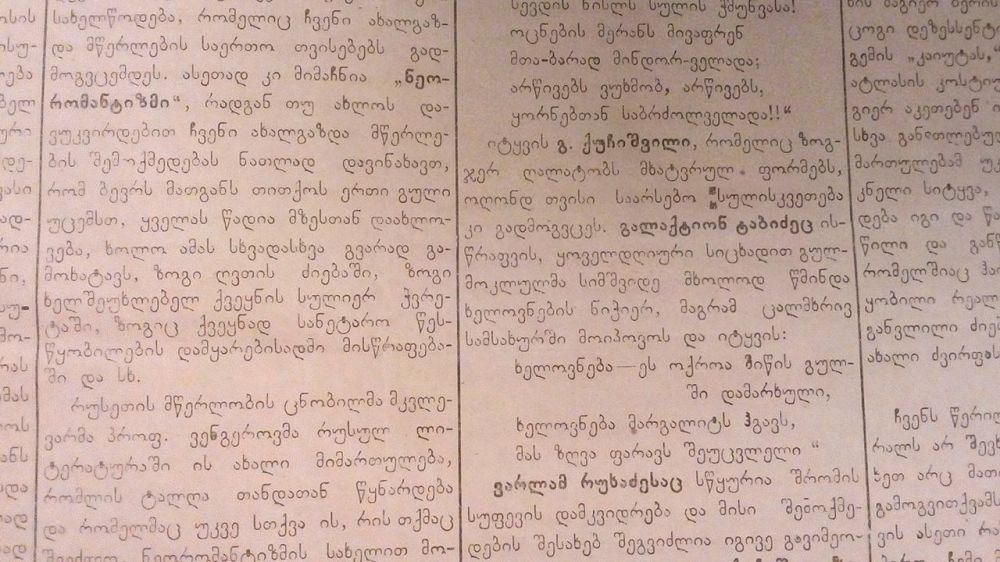 სახელწოდება, რომელიც ჩვენი ახალგაზ-
და მწერლების საერთო თვისებებს გად-
მოგვცემდეს. ასეთად კი მიმაჩნია „ნეო-
რომანტიზმი“, რადგან თუ ახლოს და-
ვუკვირდებით ჩვენი ახალგაზდა მწერლე-
ბის შემოქმედებას ნათლად დავინახავთ,
რომ ბევრს მათგანს თითქოს ერთი გული
უცემსთ, ყველას წადია მზესთან დაახლო-
ვება, ხოლო ამას სხვადასხვა გვარად გა-
მოხატავს, ზოგი ღვთის ძიებაში, ზოგი
ხელშეუხლებელ ქვეყნის სულიერ ჭვრე-
ტაში, ზოგიც ქვეყნად სანეტარო წეს-
წყობილების დამყარებისადმი მისწრაფება-
ში და სხ.
რუსეთის მწერლობის ცნობილმა მკვლე-
ვარმა პროფ. ვენგეროვმა რუსულ ლი-
ტერატურაში ის ახალი მიმართულება,
რომლის ტალღა თანდათან წყნარდება
და რომელმაც უკვე სთქვა ის, რის თქმაც
შეეძლო ნეორომანტიზმის სახელით მო-
სევდის ნისლს სულის ქმუნვასა!
ოცნების მერანს მივაფრენ
მთა-ბარად მინდორ-ველადა;
არწივებს ვუხმობ, არწივებს,
ყორნებთან საბრძოლველადა!!“
იტყვის გ. ქუჩიშვილი, რომელიც ზოგ-
ჯერ ღალატობს მხატვრულ ფორმებს,
ოღონდ თვისი საარსებო სულისკვეთება
კი გადმოგვცეს. გალაქტიონ ტაბიძეც ის-
წრაფვის, ყოველდღიური სიცხადით გულ-
მოკლულმა სიმშვიდე მხოლოდ წმინდა
ხელოვნების ნიჭიერ, მაგრამ ცალმხრივ
სამსახურში მოიპოვოს და იტყვის:
ხელოვნება—ეს ოქროა მიწის გულ-
ში დამარხული,
ხელოვნება მარგალიტს ჰგავს,
მას ზღვა ფარავს შეუცვლელი“
ვარლამ რუხაძესაც სწყურია შრომის
სუფევის დამკვიდრება და მისი შემოქმე-
დების შესახებ შეგვიძლია იგივე გავიმეო-
ცოგი დეზესსენტ
გემის „კაიუტას,
ატლასის კოსტიუ
გიერ აკეთებენ
სხვა განცთლებუ
მართულებამ უ
კნელი სიტყვა,
დება იგი და წა
წილი და განწ
რომელშიაც ჰა
ყობილი რეალ
განვლილი ძიე
ახალი ძვირფას
ჩვენს წერილ
რალს არ შევხ
ხეთ არც მათ
გამოგვითქვამს
ვის ასეთი რა